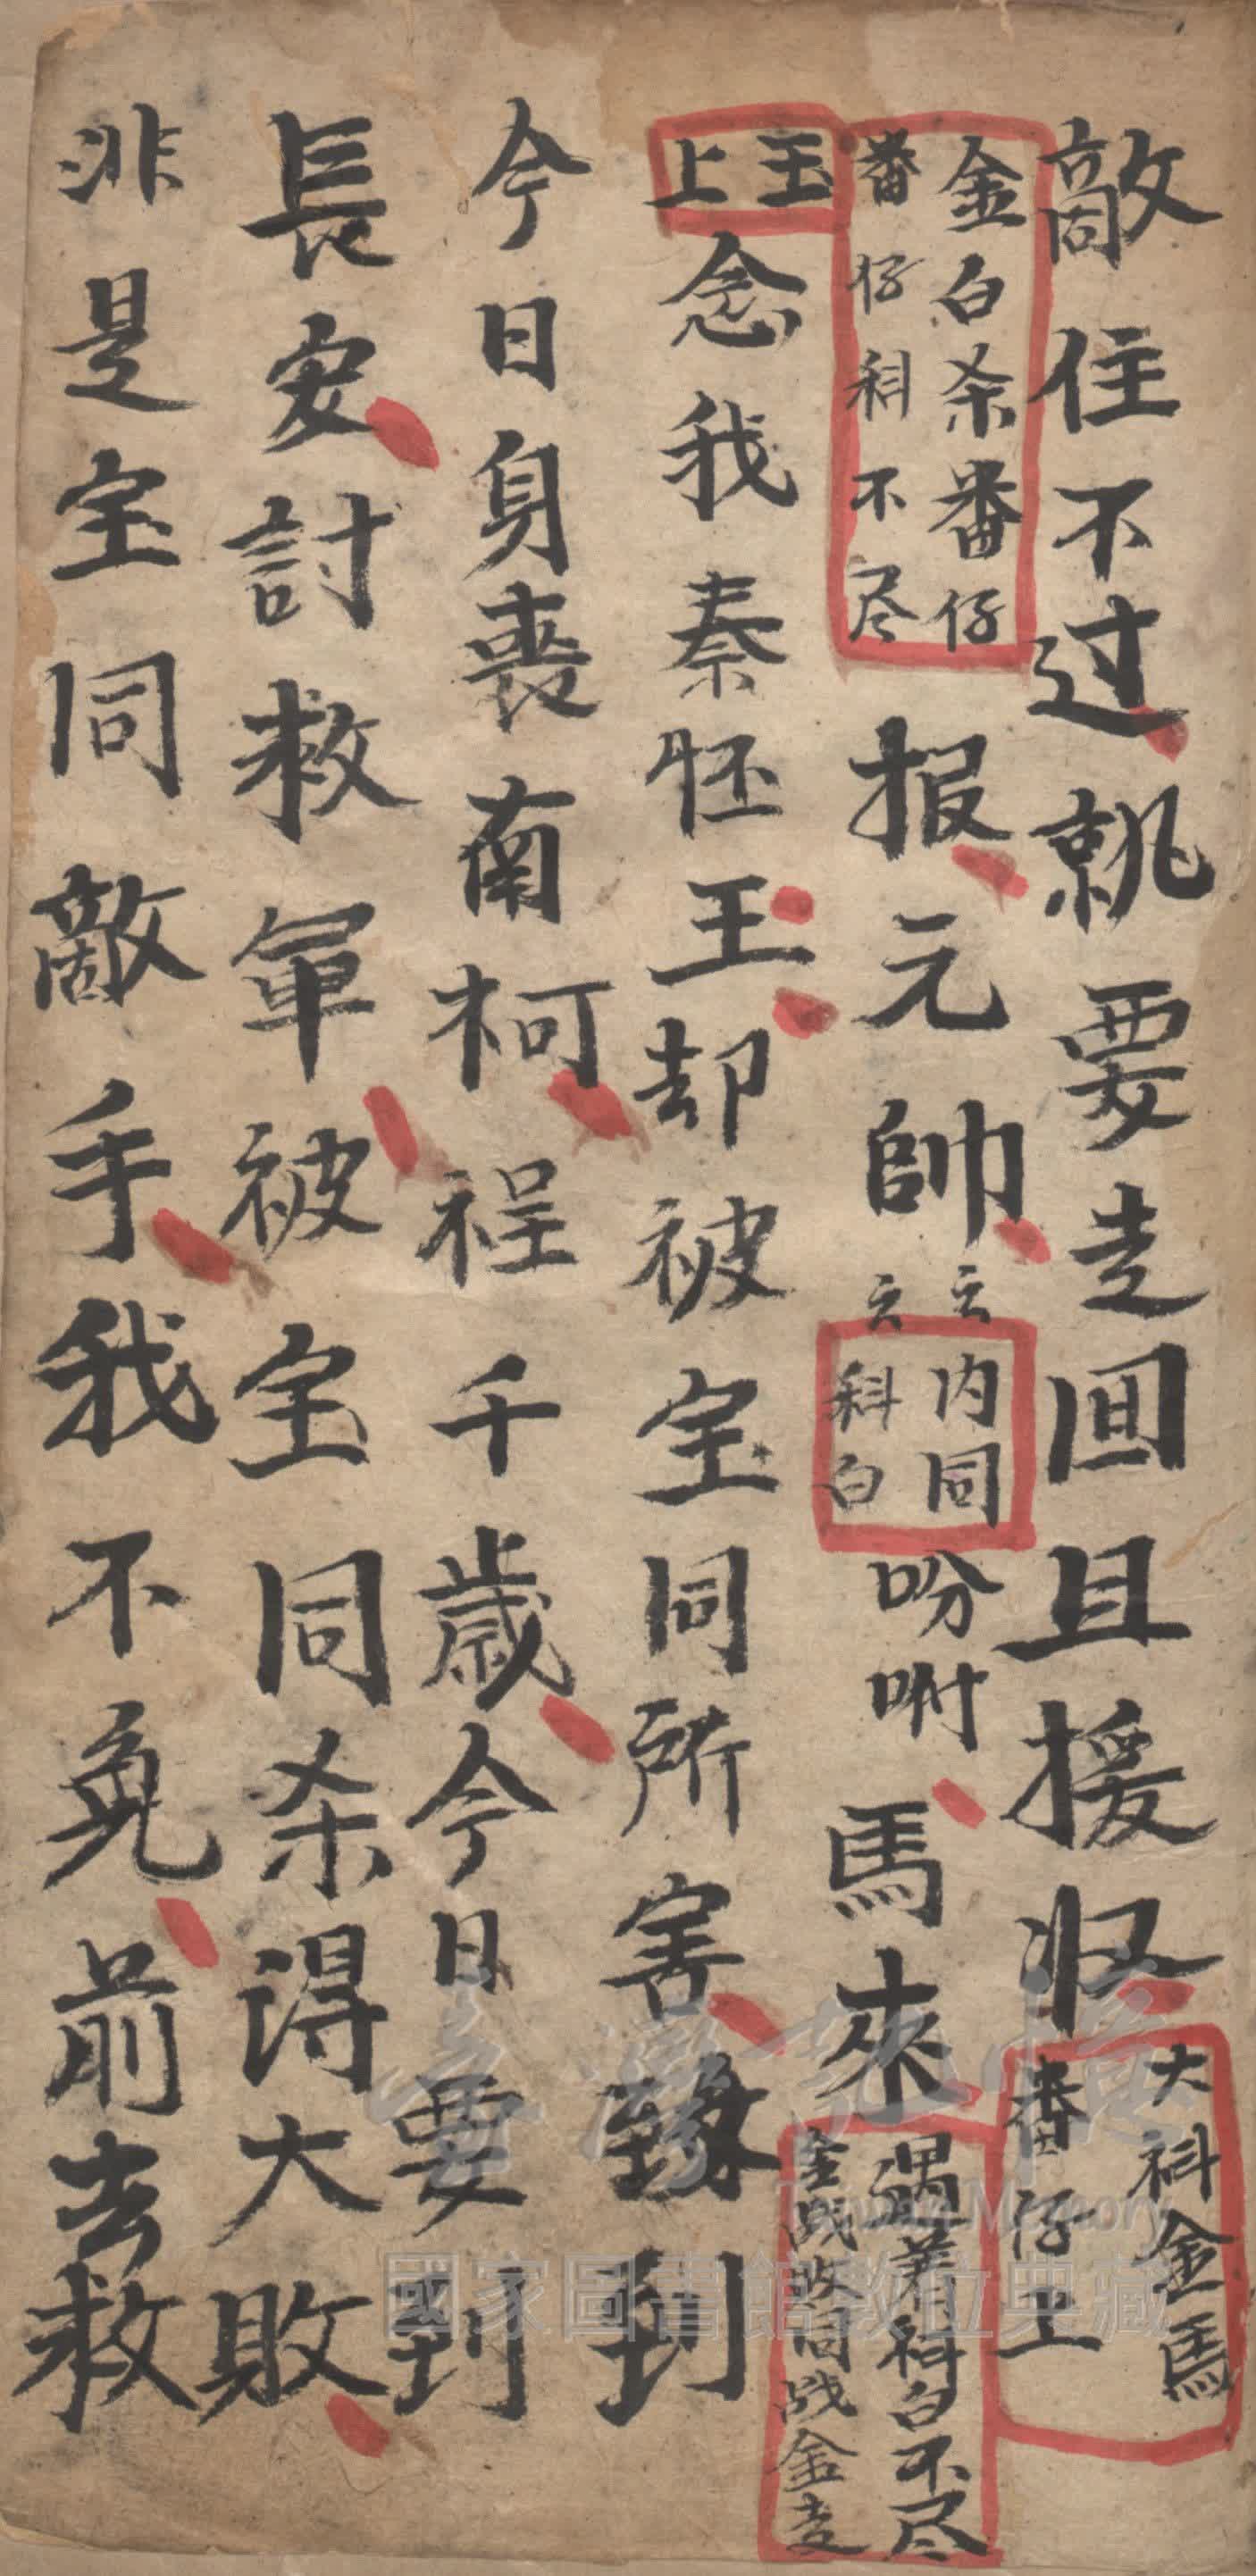 敵住不过就要走囬且援收
大科金馬
番仔上
金白杀番仔
番仔科不尽
报元帥云云
内同
科白
吩咐馬來
遇着科白不尽
金战败同战金走
王
上
念我秦怀王却被宝同所害致到
今日身喪南柯程千歲今日要到
長安討救軍被宝同杀得大敗
非是宝同敵手我不免前去救
臺灣記憶
Taiwan Memory
國家圖書館數位典藏